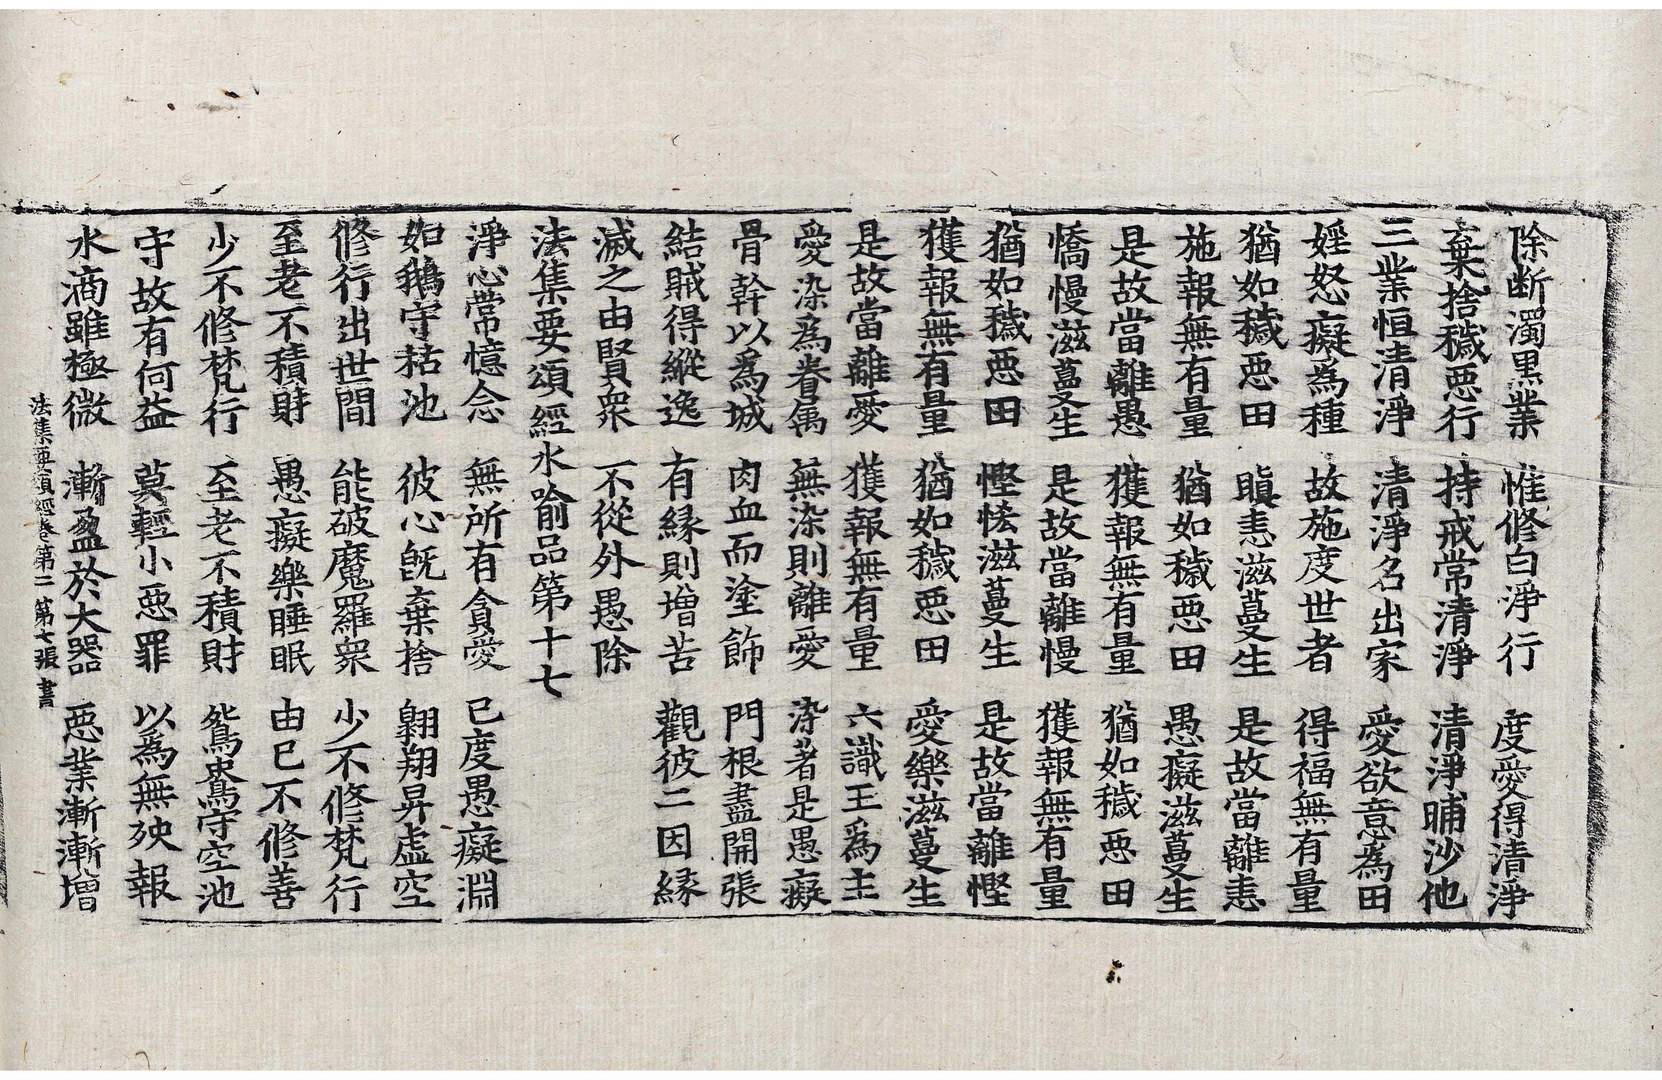 除断濁黒業　惟修白淨行　度愛得清淨
棄捨穢惡行　持戒常清淨　清淨晡沙他
三業恒清淨　清淨名出家　愛欲意為田
婬怒癡為種　故施度世者　得福無有量
猶如穢惡田　瞋恚滋蔓生　是故當離恚
施報無有量　猶如穢惡田　愚癡滋蔓生
是故當離愚　獲報無有量　猶如穢惡田
憍慢滋蔓生　是故當離慢　獲報無有量
猶如穢惡田　慳悋滋蔓生　是故當離慳
獲報無有量　猶如穢惡田　愛樂滋蔓生
是故當離愛　獲報無有量　六識王爲主
愛染爲眷属　無染則離愛　染著是愚癡
骨幹以爲城　肉血而塗飾　門根盡開張
結賊得縱逸　有縁則增苦　觀彼二因縁
滅之由賢衆　不從外愚除
法集要頌經水喻品第十七
淨心常憶念　無所有貪愛　已度愚癡淵
如鵝守枯池　彼心旣棄捨　翱翔昇虛空
修行出世間　能破魔羅衆　少不修梵行
至老不積財　愚癡樂睡眠　由己不修善
少不修梵行　至老不積財　鴛鴦守空池
守故有何益　莫輕小惡罪　以爲無殃報
水滴雖極微　漸盈於大器　惡業漸漸增
法集要頌經卷第二　第七張　書